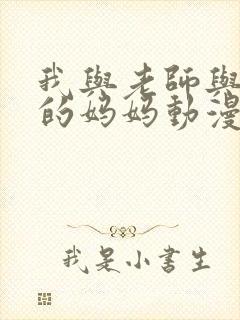 我與老師與
的妈妈動漫
我是小書生